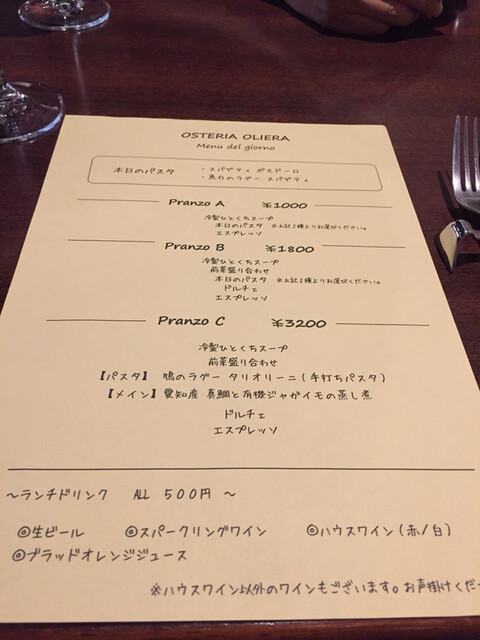 OSTERIA OLIERA
Menu del giorno
本日のパスタ ・スパゲティ ポモドーロ
・魚介のラグー スパゲティ
Pranzo A ¥1000
冷製ひとくちスープ
本日のパスタ ※上記2種よりお選びください。
エスプレッソ
Pranzo B ¥1800
冷製ひとくちスープ
前菜盛り合わせ
本日のパスタ ※上記2種よりお選びください。
ドルチェ
エスプレッソ
Pranzo C ¥3200
冷製ひとくちスープ
前菜盛り合わせ
【パスタ】 鳩のラグー タリオリーニ(手打ちパスタ)
【メイン】愛知産 真鯛と有機ジャガイモの蒸し煮
ドルチェ
エスプレッソ
~ランチドリンク ALL 500円 ~
◎生ビール ◎スパークリングワイン ◎ハウスワイン(赤/白)
◎ブラッドオレンジジュース
※ハウスワイン以外のワインもございます。お声掛けくだ